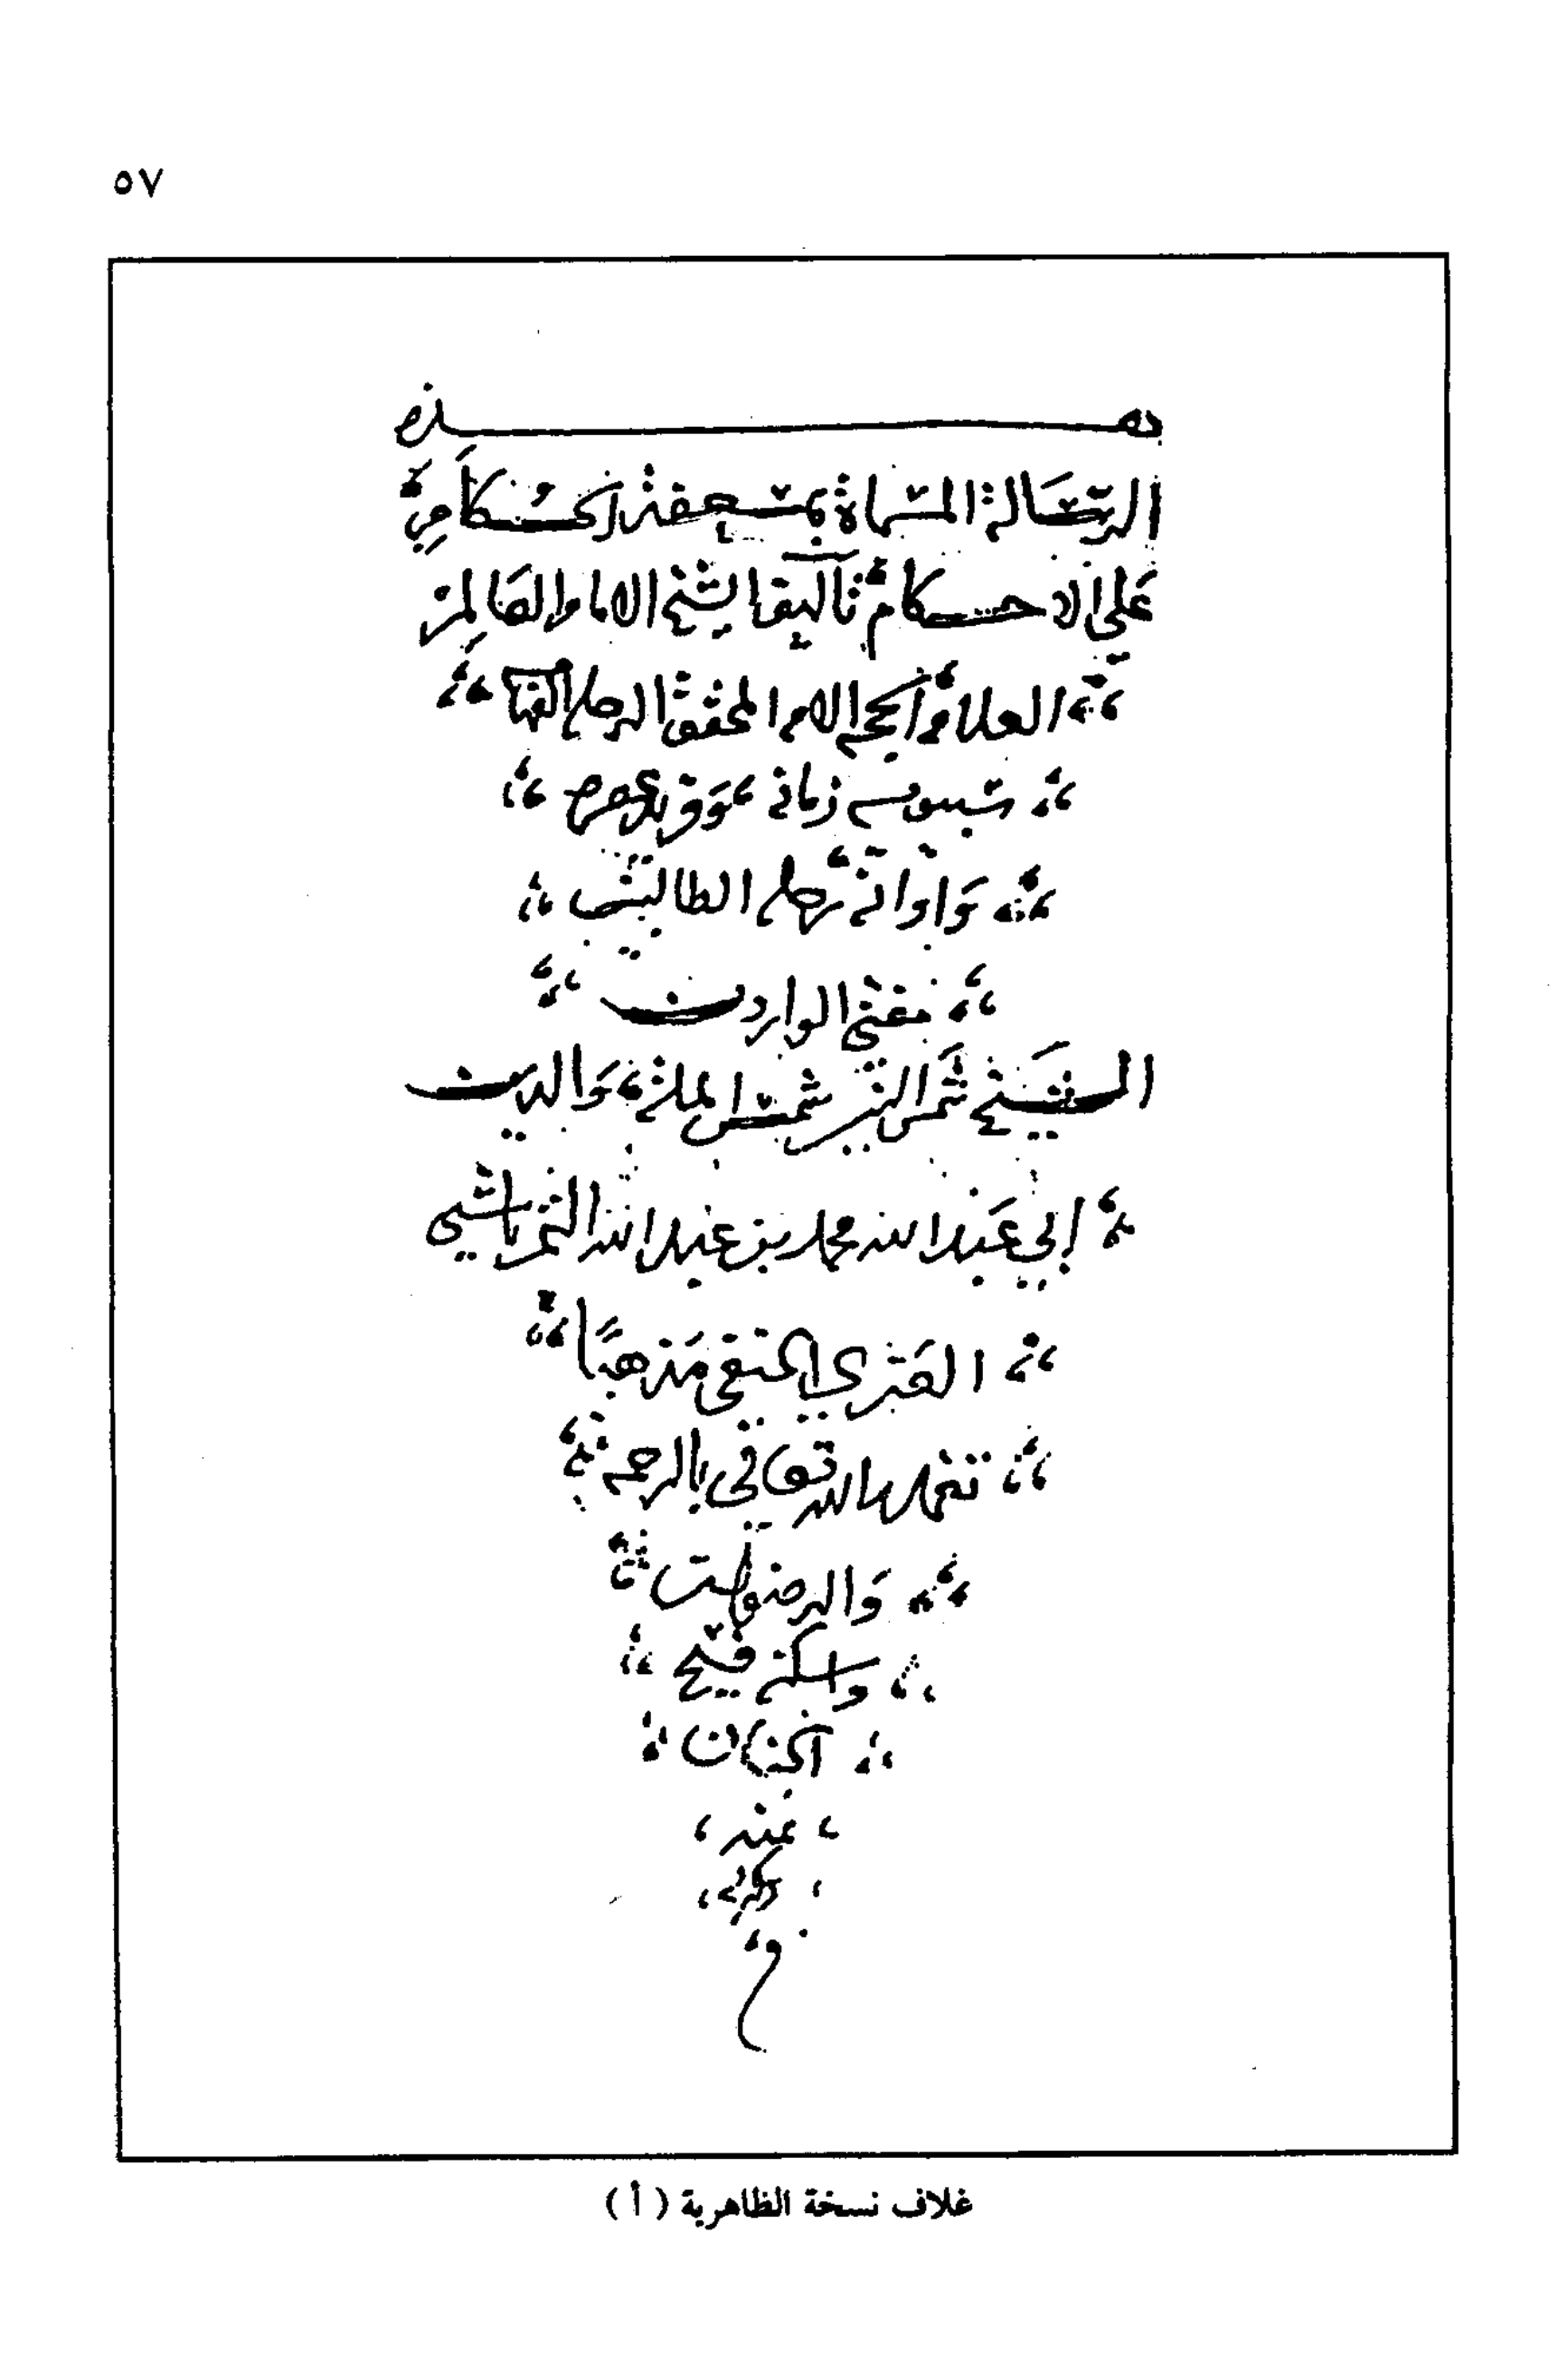 ٥٧
هذه
الرسالة المسماة بمسعفة الحكام
على الاحكام تأليف الشيخ الامام العالم
العلامة الحجة المحقق الرحلة
زمانه
وأوانه رحلة الطالبين
مفتي الواردين
الشيخ شمس الملة والدين
أبي عبد الله محمد بن عبد الله التمرتاشي
الغزي الحنفي مذهبًا
تغمده الله تعالى بالرحمة
والرضوان
واسكنه فسيح
الجنان
عنه
م
غلاف نسخة الظاهرية ( أ )